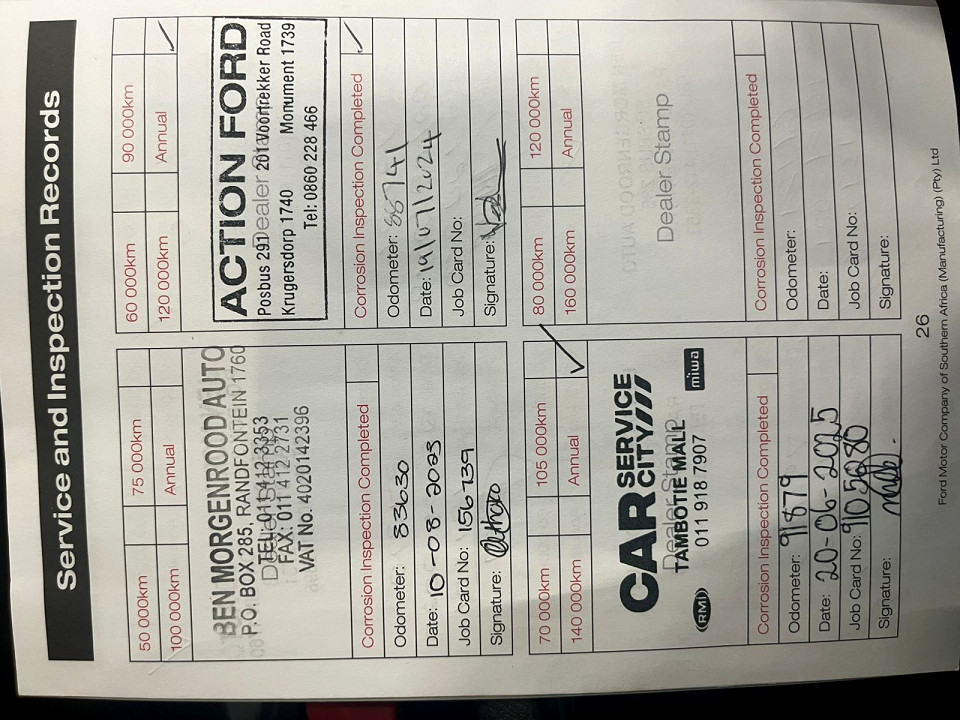 Service and Inspection Records
50 000km 75 000km
100 000km Annual
BEN MORGENROOD AUTO
P.O. BOX 285, RANDFONTEIN 1760
Dealer Stamp
TEL: 011 412 3353
FAX: 011 412 2731
VAT No. 4020142396
Corrosion Inspection Completed
Odometer: 83630
Date: 10-08-2023
Job Card No: 156739
Signature:
60 000km 90 000km
120 000km Annual ✓
ACTION FORD
Dealer Stamp
Posbus 291 201 Voortrekker Road
Krugersdorp 1740 Monument 1739
Tel: 0860 228 466
Corrosion Inspection Completed ✓
Odometer: 88741
Date: 19/07/2024
Job Card No:
Signature:
70 000km 105 000km
140 000km Annual ✓
CAR SERVICE CITY
Dealer Stamp
TAMBOTIE MALL
RMI 011 918 7907 miwa
Corrosion Inspection Completed
Odometer: 91879
Date: 20-06-2025
Job Card No: 9105280
Signature:
80 000km 120 000km
160 000km Annual
Dealer Stamp
Corrosion Inspection Completed
Odometer:
Date:
Job Card No:
Signature:
26
Ford Motor Company of Southern Africa (Manufacturing) (Pty) Ltd